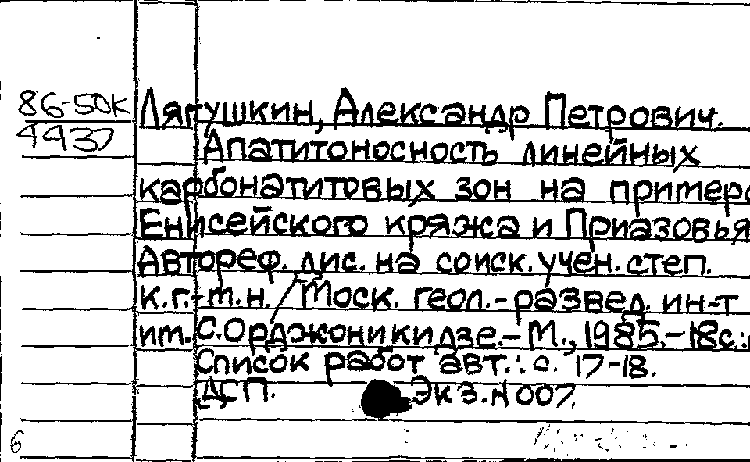 86-50к
4937
Ляпушкин, Александр Петрович.
Апатитоносность линейных
карбонатитовых зон на примере
Енисейского кряжа и Приазовья
Автореф. дис. на соиск. учен. степ.
к.г.-м.н. / Моск. геол.-развед. ин-т
им. С. Орджоникидзе.- М., 1985.-18с.:
Список работ авт.: с. 17-18.
ДСП. Экз. N 007.
6